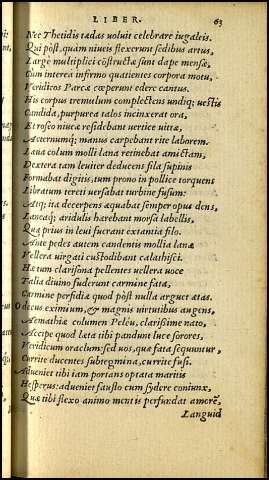 LIBER. 63
Nec Thetidis tædas voluit celebrare iugaleis.
Qui pòst, quam niueis flexerunt sedibus artus,
Largè multiplici cõstructæ sunt dape mensæ,
Cum interea infirmo quatientes corpora motu,
Veridicos Parcæ cœperunt edere cantus.
His corpus tremulum complectens undiq; uestis
Candida, purpurea talos incinxerat ora,
At roseo niueæ residebant uertice uittæ,
Aeternumq; manus carpebant rite laborem.
Læua colum molli lana retinebat amictam,
Dextera tam leuiter deducens fila supinis
Formabat digitis, tum prono in pollice torquens
Libratum tereti uersabat turbine fusum:
Atq; ita decerpens æquabat semper opus dens,
Laneaq; aridulis hærebant morsa labellis,
Quæ prius in leui fuerant extantia filo.
Ante pedes autem candentis mollia lanæ
Vellera uirgati custodibant calathisci.
Hæ tum clarisona pellentes uellera uoce
Talia diuino fuderunt carmine fata,
Carmine perfidiæ quod pòst nulla arguet ætas.
O decus eximium, & magnis uirtutibus augens,
Aemathiæ columen Peleu, clarissime nato,
Accipe quod læta tibi pandunt luce sorores,
Veridicum oraclum: sed uos, quæ fata sequuntur,
Currite ducentes subtegmina, currite fusi.
Adueniet tibi iam portans optata maritis
Hesperus: adueniet fausto cum sydere coniunx,
Quæ tibi flexo animo mentis perfundat amorẽ,
Languid